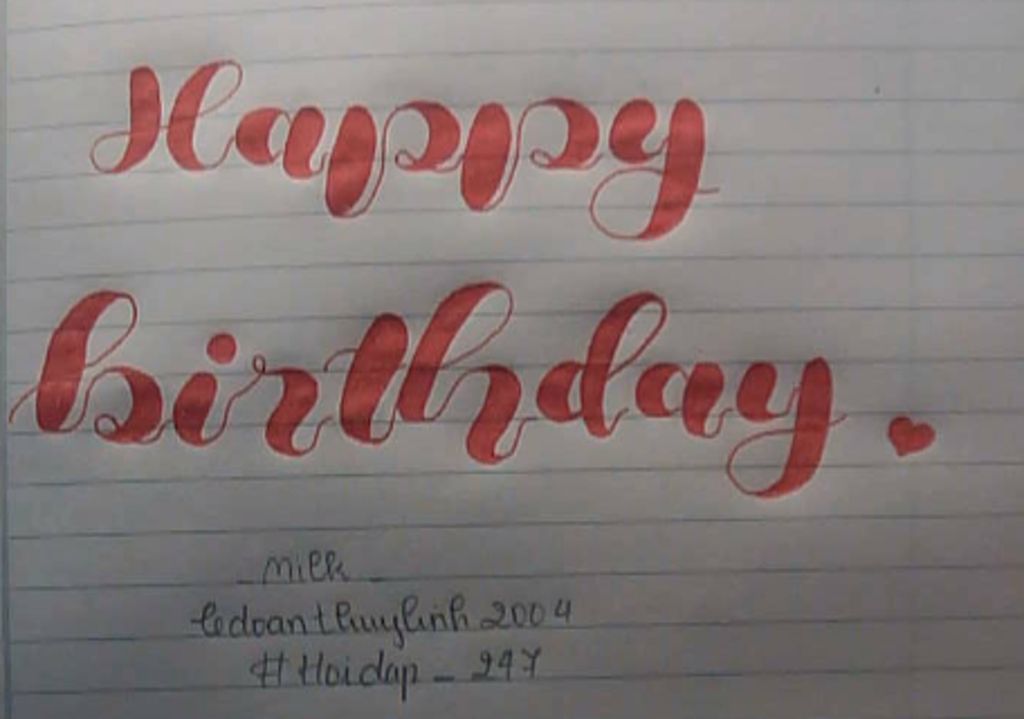 Happy
birthday.
_ Milk _
ledoanthuylinh 2004
# Hoidap _ 247